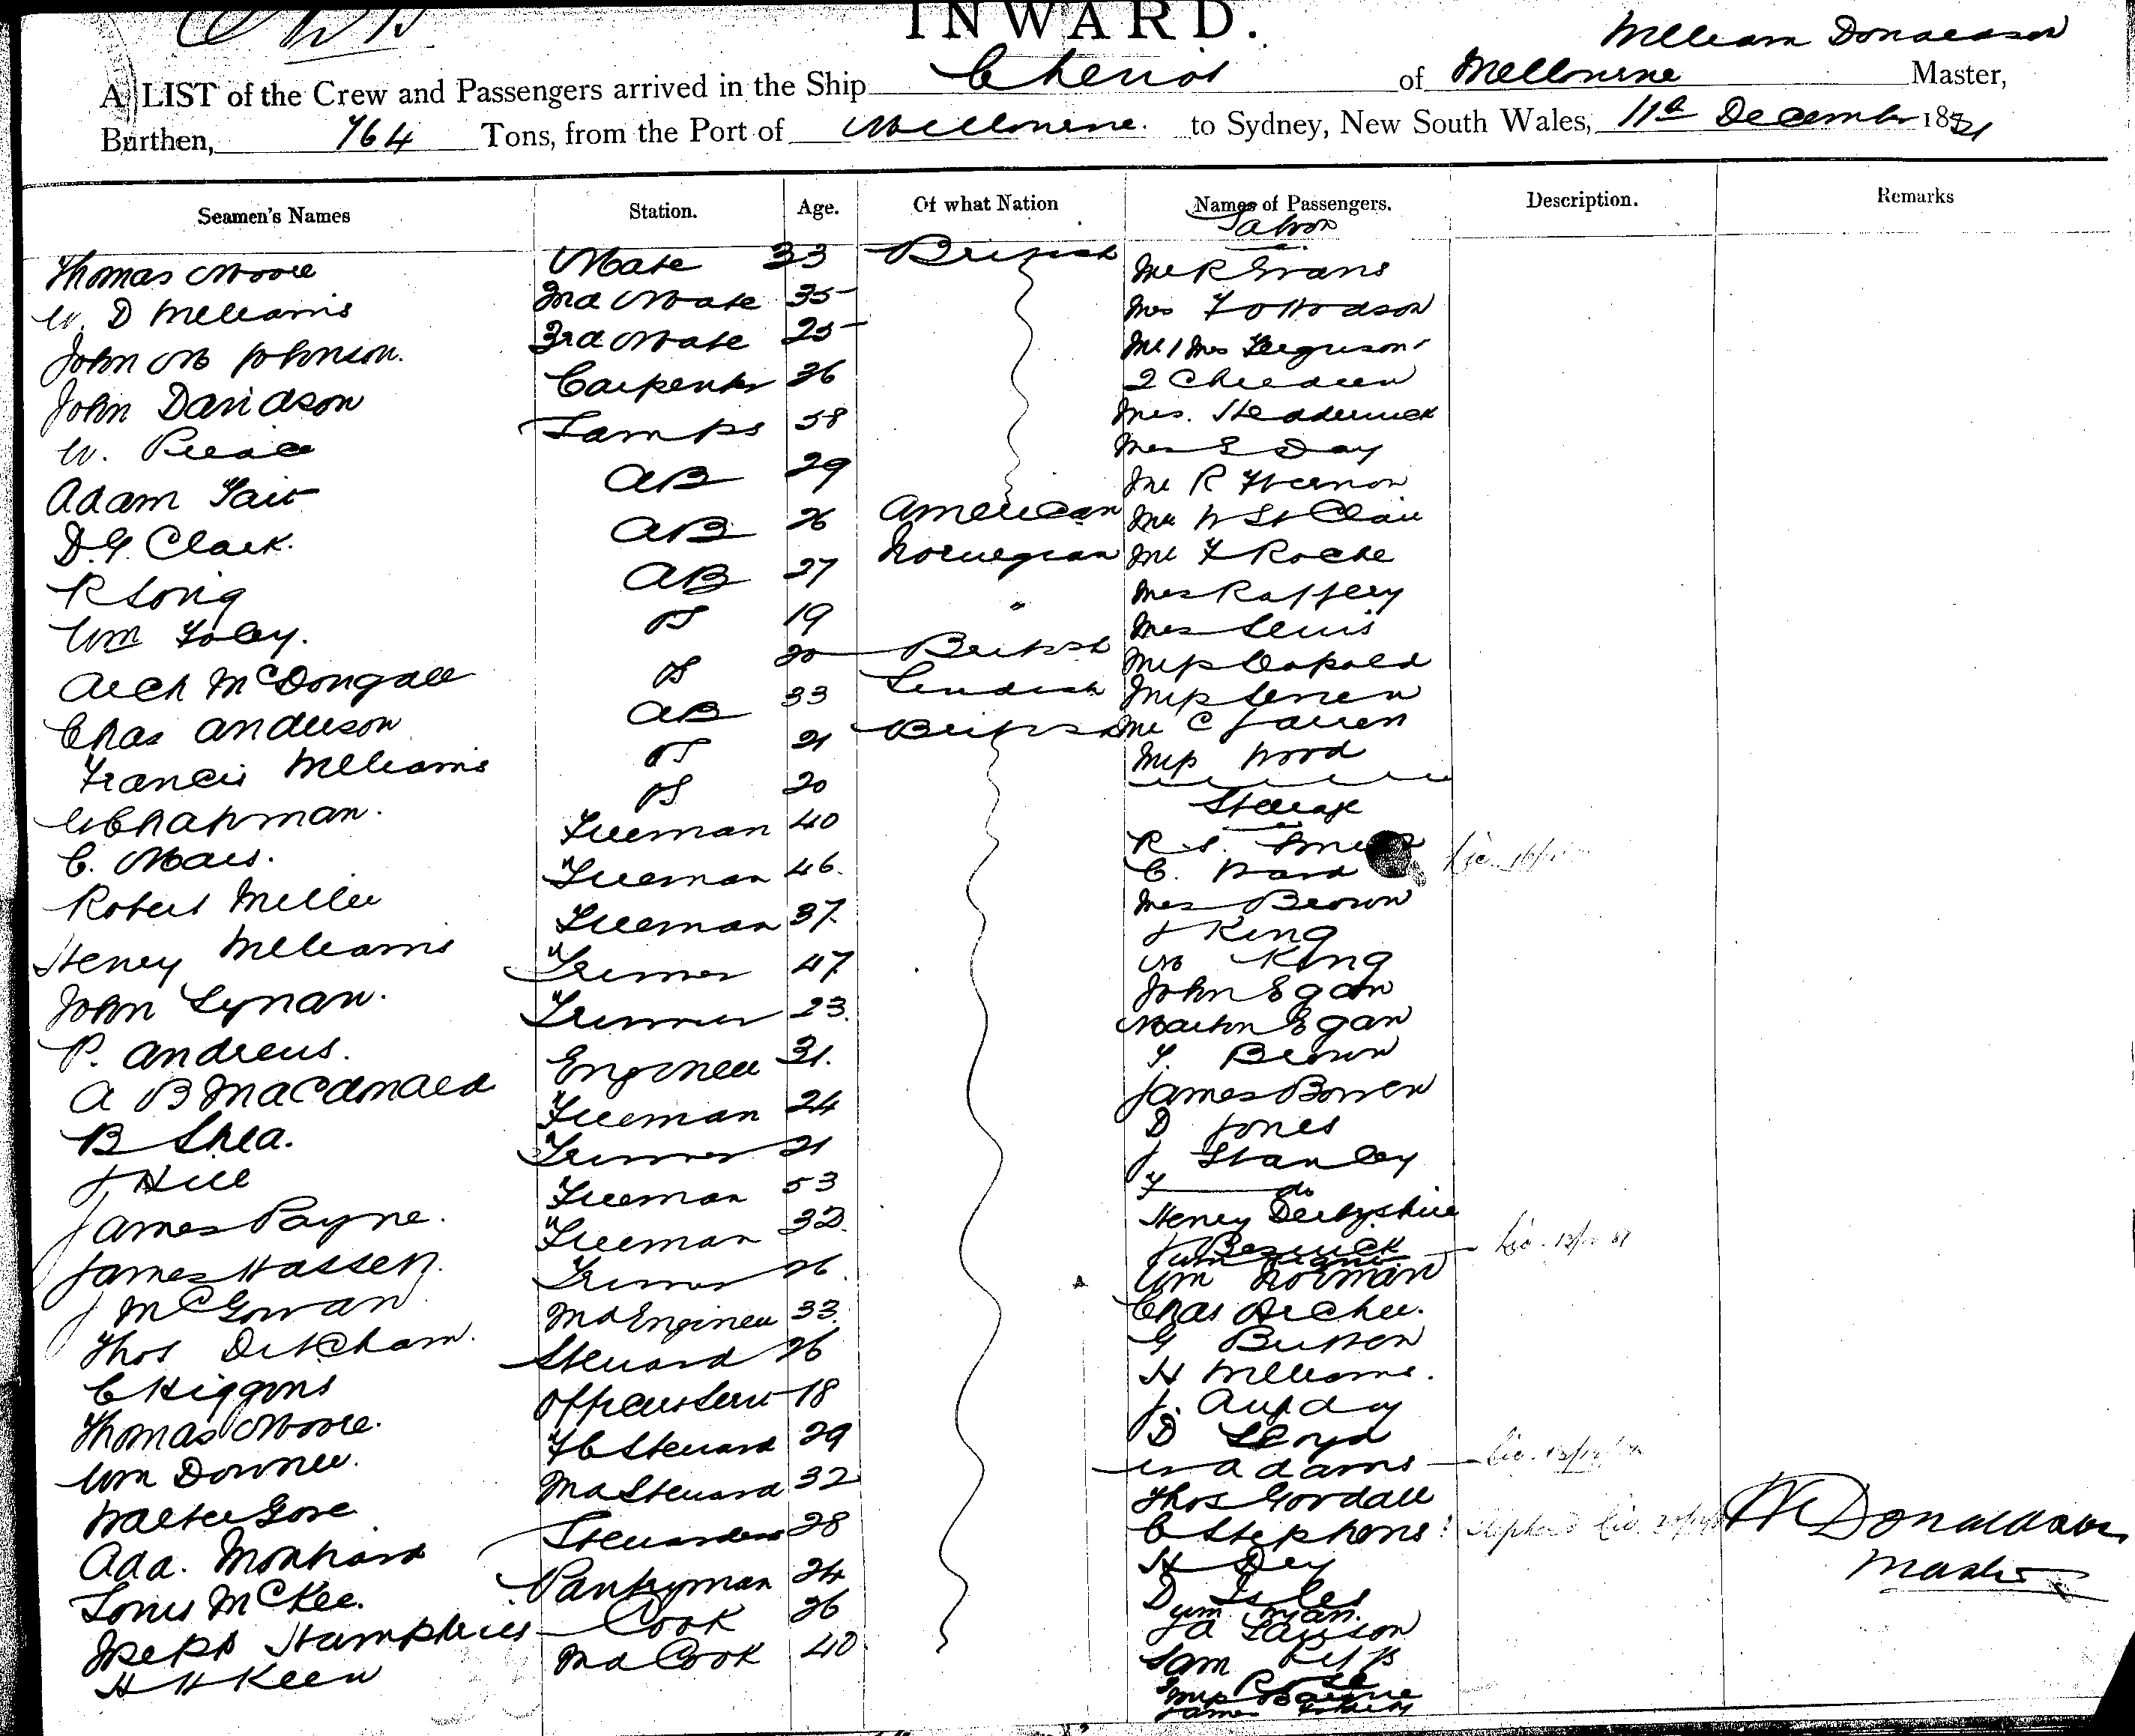 INWARD.
William Donaldson
A LIST of the Crew and Passengers arrived in the Ship Cheviot of Melbourne Master,
Burthen, 764 Tons, from the Port of Melbourne. to Sydney, New South Wales, 11th December 18
Seamen's Names Station. Age. Of what Nation Names of Passengers. Description. Remarks
Saloon
Thomas Moore Mate 33 British Mr R Evans
W. D Williams 2nd Mate 35 Mrs Hodson
John M Johnson. 3rd Mate 25 Mr & Mrs Ferguson
John Davidson Carpenter 36 2 Children
W. Lamps 58 Mrs. Hedderwick
Adam Tait AB 29 Mrs E Day
D.G. Clark. AB 26 American Mr R
R Long AB 27 Norwegian Mr W St Clair
Wm Foley. OS 19 " Mr F Roche
Arch McDougall OS 20 British Mrs Raffery
Chas Anderson AB 33 Mrs Lewis
Francis Williams OS 21 British Miss Leopold
W Chapman. OS 20 Miss
C. Fireman 40 Mr C
Robert Miller Fireman 46. Miss Wood
Henry Williams Fireman 37. Steerage
John Lynan. Trimmer 47 R. S.
P. Andrews. Trimmer 23. C. Ward
A B Macdonald Engineer 31. Mrs Brown
B Shea. Fireman 24 J King
J Hill Trimmer 21 M King
James Payne. Fireman 53 John Egan
James Hassen. Fireman 32. Martin Egan
J McGowan Trimmer 26. T. Brown
Thos Ditcham. 2nd Engineer 33. James Bowen
C Higgins Steward 26 D Jones
Thomas Moore. Officers Servt 18 J Stanley
Wm Downer. F C Steward 29 F do
Walter Gore 2nd Steward 32 Henry Derbyshire
Ada. Stewardess 28 J Beswick
Louis McKee. Pantryman 24 Wm Norman
Joseph Humphries Cook 26 Chas Archer.
H H Keen 2nd Cook 40. G Button
H Williams.
J.
D Lloyd
W Adams
Thos Goodall
C Stephens
H Dey
D Isles
Lawson
Sam
Rose
W Donaldson
Master